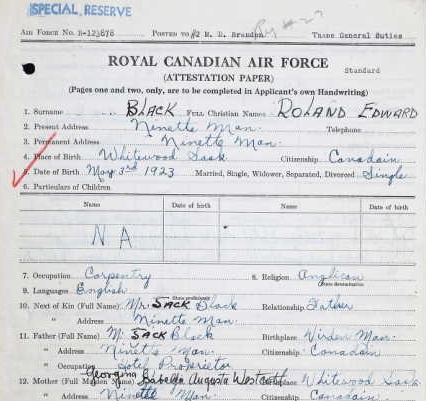 SPECIAL RESERVE
AIR FORCE NO. R-123878 POSTED TO #2 M. D. Brandon TRADE General Duties
ROYAL CANADIAN AIR FORCE
(ATTESTATION PAPER)
Standard
(Pages one and two, only, are to be completed in Applicant's own Handwriting)
1. Surname BLACK FULL Christian Names ROLAND EDWARD
2. Present Address Ninette Man. Telephone
3. Permanent Address Ninette Man.
4. Place of Birth Whitewood Sask Citizenship Canadain
5. Date of Birth May 3rd 1923 Married, Single, Widower, Separated, Divorced Single
6. Particulars of Children.
Name Date of birth Name Date of birth
N A
7. Occupation Carpentry 8. Religion Anglican
9. Languages English
10. Next of Kin (Full Name) Mr SACK Black Relationship Father
" Address Ninette Man.
11. Father (Full Name) Mr SACK Black Birthplace Virden Man.
" Address Ninette Man. Citizenship Canadain
" Occupation Proprietor
Georgina
12. Mother (Full Maiden Name) Isabella Augusta Birthplace Whitewood Sask
" Address Ninette Man Citizenship Canadain